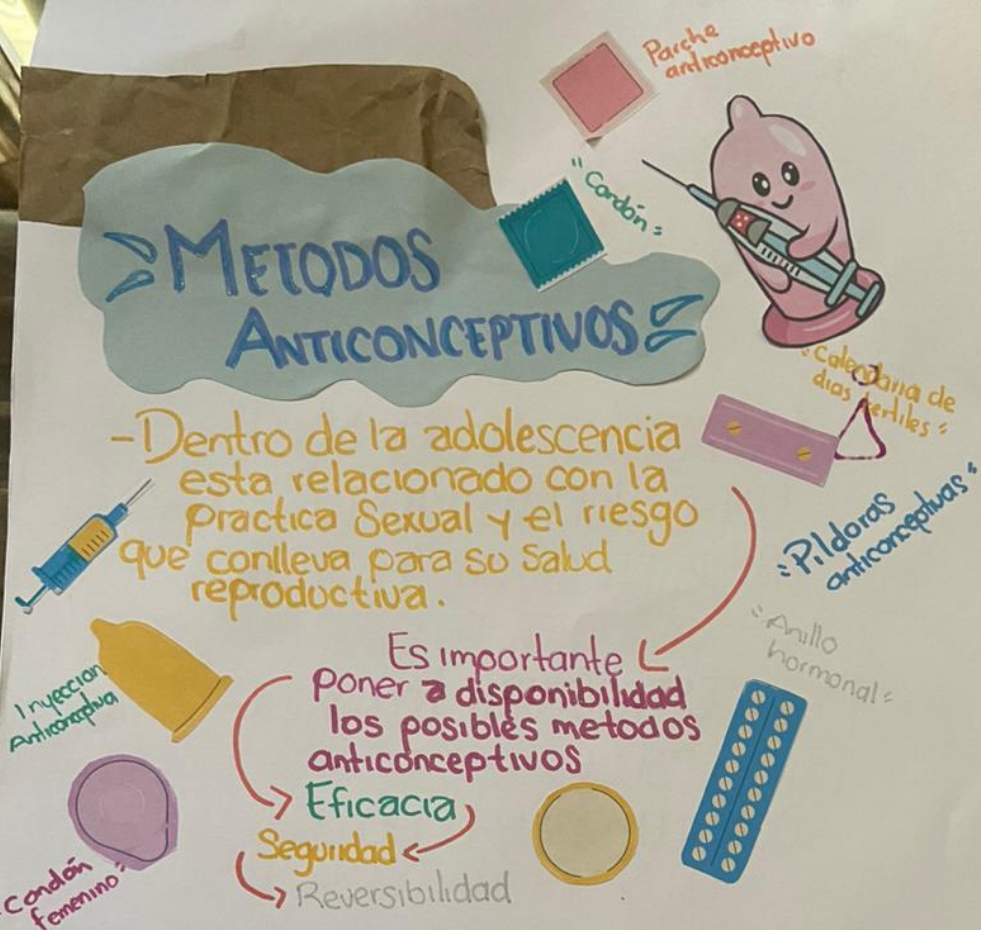 Parche
anticonceptivo
"Condón"
METODOS
ANTICONCEPTIVOS
"Calendaria de
dias fertiles"
-Dentro de la adolescencia
esta relacionado con la
practica Sexual y el riesgo
que conlleva para su Salud
reproductiva.
"Pildoras
anticonceptivas"
"Anillo
hormonal"
Es importante
poner a disponibilidad
los posibles metodos
anticonceptivos
Inyeccion
Anticonceptiva
Eficacia
Seguridad
Reversibilidad
"Condón
femenino"